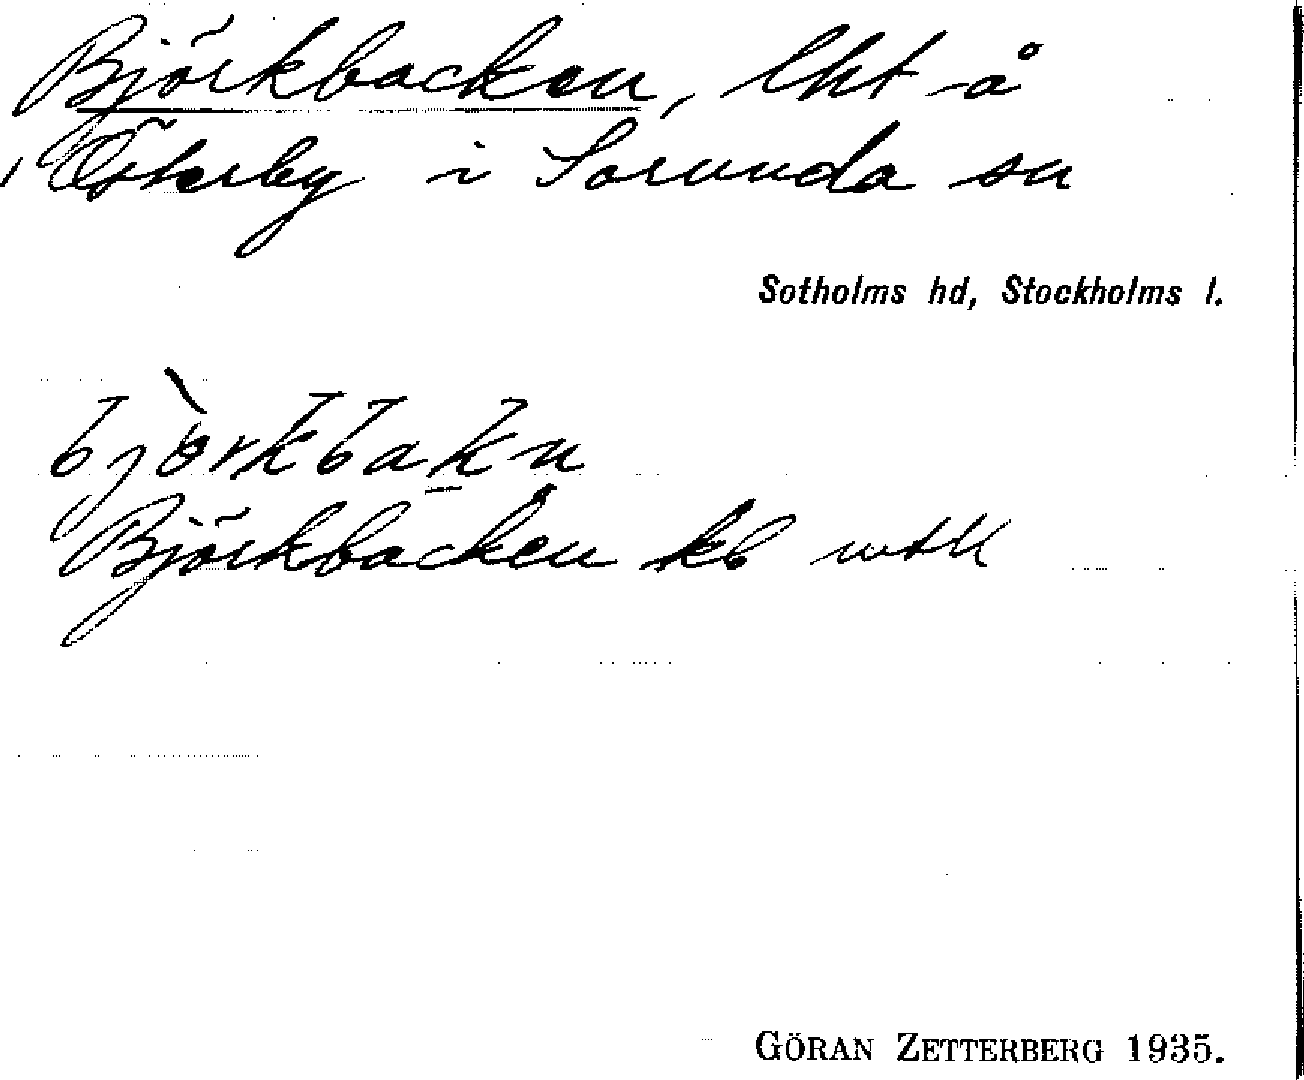 Björkbacken, lht å
Österby i Sorunda sn
Sotholms hd, Stockholms l.
bjòrkbakn
Björkbacken kb
GÖRAN ZETTERBERG 1935.